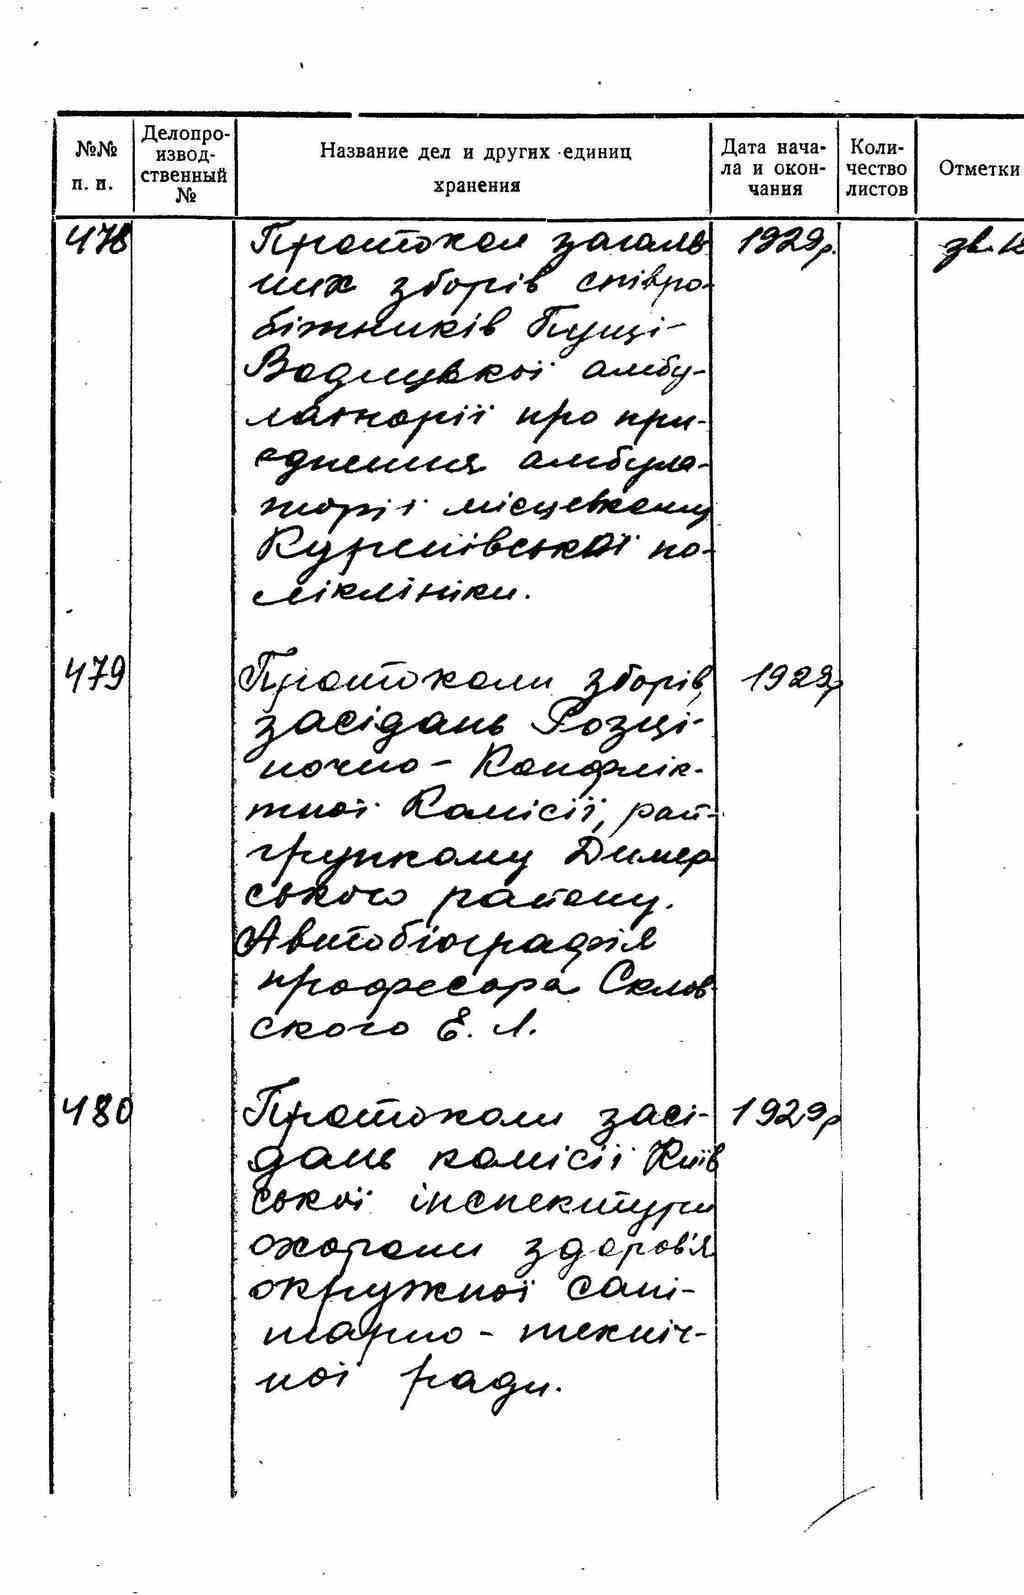 №№ п. п.
Делопро-
извод-
ственный
№
Название дел и других единиц
хранения
Дата нача-
ла и окон-
чания
Коли-
чество
листов
Отметки
478 Протокол загаль 1929р.
них зборів співро-
біжників Пущі-
Водицької амбу-
латорії про при-
єднення амбула-
торії місцевкому
Куренівської по-
ліклініки.
479 Протоколи зборів, 1929р
засідань Розці-
ночно - Конфлік-
тної Комісії, рай-
групкому Димер
ського району.
Автобіографія
професора Склов
ского Е. Л.
480 Протоколи засі- 1929р
дань комісії Київ
ської інспектури
охорони здоров'я
окружної сані-
тарно - техніч-
ної ради.